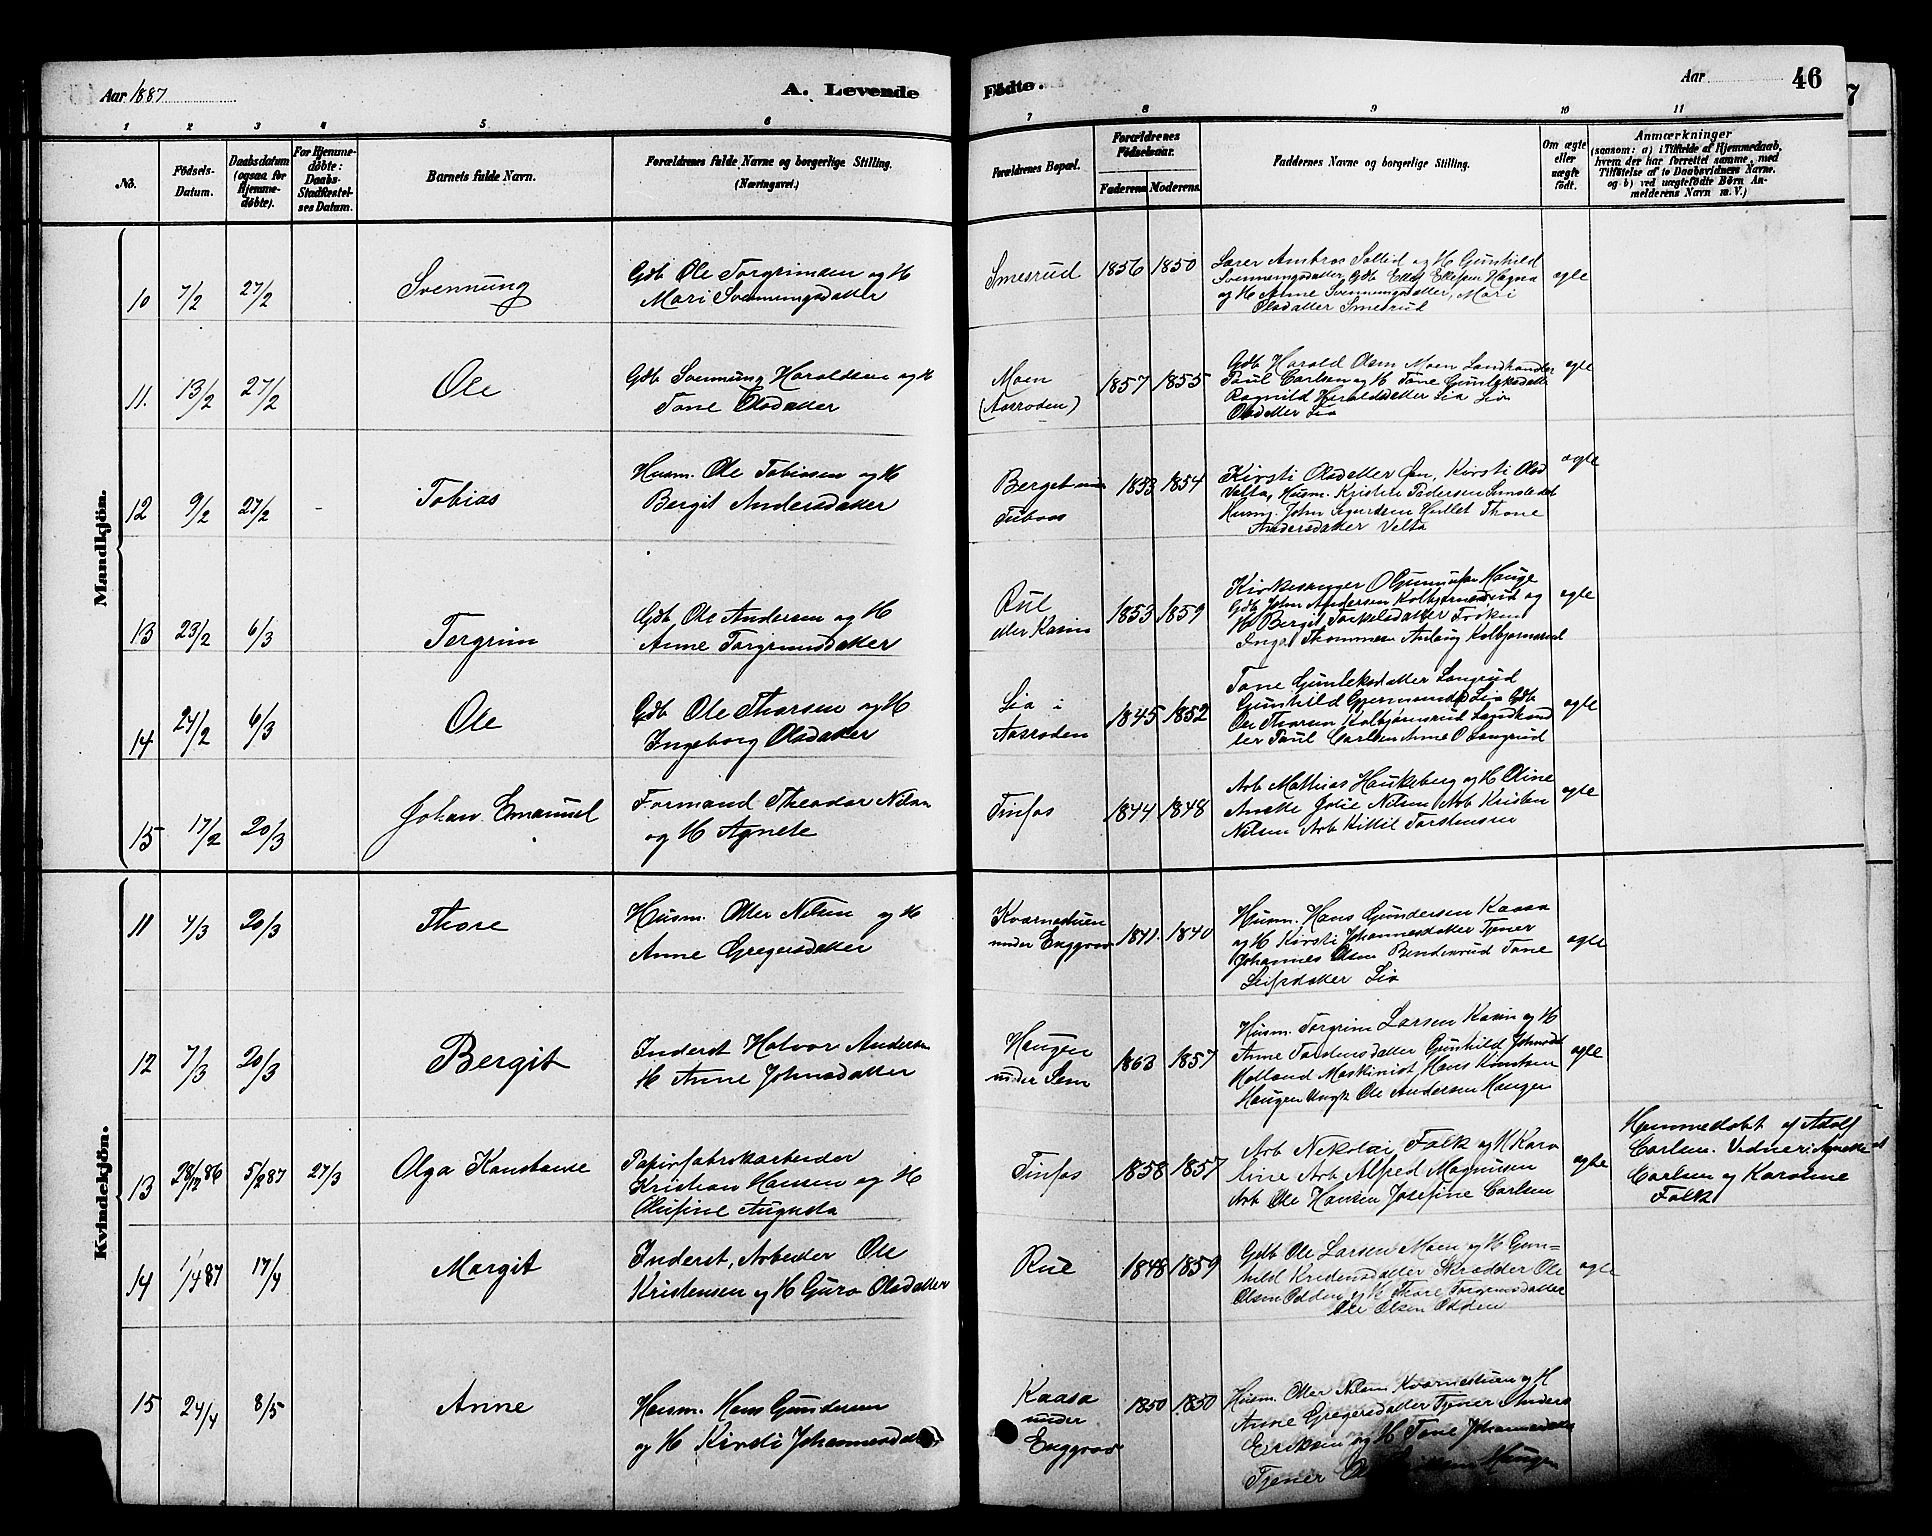 Aar 1887
A. Levende
Fødte.
Aar
46
1 2 3 4 5 6 7 8 9 10 11
No.
Fødsels-Datum.
Daabsdatum (ogsaa for Hjemme-døbte).
For Hjemme-døbte: Daabs-Stadfæstel-ses Datum.
Barnets fulde Navn.
Forældrenes fulde Navne og borgerlige Stilling.
(Næringsvei.)
Forældrenes Bopæl.
Forældrenes Fødselsaar.
Faderens
Moderens
Faddernes Navne og borgerlige Stilling.
Om ægte eller uægte født.
Anmærkninger
(saasom: a) i Tilfælde af Hjemmedaab,
hvem der har forrettet samme, med
Tilføielse af to Daabsvidners Navne.
og b) ved uægtefødte Børn An-
melderens Navn m. V.)
Mandkjön.
10 7/2 27/2 Svennung
Gdb Ole Torgrimsen og H
Mari Svennungsdatter
Smesrud 1856 1850
Lærer Ambros Soltid og H Gunhild
Svennungsdatter, Gdb Ellef Ellefsen Hagna
og H Anne Svennungsdatter, Mari
Olsdatter Smesrud
ægte
11. 13/2 27/2 Ole
Gdb Svennung Haroldsen og H
Tone Olsdatter
Moen
(Aasroden)
1857 1855
Gdb Harold Olsen Moen Landhandler
Paul Carlsen og H Tone Gunleksdatter
Ragnild Haroldsdatter Lia Liv
Olsdatter Lia
ægte
12 9/2 27/2 - Tobias
Husm. Ole Tobiasen og H
Bergit Andersdatter
Berget under
Tuboas
1853 1854
Kirsti Olsdatter Øen, Kirsti Olsd
Velta, Husm. Kristen Pedersen Semsledet
Husm. John Sgurdsen Hullet Thone
Andersdatter Velta
ægte
13 23/2 6/3 Torgrim
Gdb. Ole Andersen og H
Anne Torgrimsdatter
Rul
eller Kasin
1853 1859
Kirkesanger O Gunnufsen Hauge
Gdb John Andersen Kolbjørnsrud og
H Bergit Torkelsdatter Frøken
Inga Thommesen Aslaug Kolbjørnsrud
ægte
14 24/2 6/3 Ole
Gdb Ole Thorsen og H
Ingeborg Olsdatter
Lia i
Aasroden
1845 1852
Tone Gunleksdatter Langrud
Gunhild Gjermundsd Lia Gdb
Ole Thorsen Kolbjørnsrud Landhand
ler Paul Carlsen Anne O Langrud
ægte
15 17/2 20/3 Johan Emanuel
Formand Theodor Nilsen
og H Agnete
Tinfos 1844 1848
Arb Mathias Haukeberg og H Oline
Anette Julie Nilsen Arb Kristen
Nilsen Arb Kittil Torstensen
ægte
Kvindekjön.
11 4/3 20/3 Thore
Husm. Otter Nilsen og H
Anne Gregersdatter
Kvernstuen
under Enggrav
1841. 1840
Husm. Hans Gundersen Kaasa
og H Kirsti Johannesdatter Tjener
Johannes Olsen Bendiksrud Tone
Leifsdatter Lia
ægte
12 7/3 20/3 Bergit
Inderst Halvor Andersen
H Anne Johnsdatter
Haugen
under Sem
1863 1857
Husm. Torgrim Larsen Kasin og H
Anne Torstensdatter Gunhild Johnsdat
Holland Maskinist Hans Knutsen
Haugen Ungk Ole Andersen Haugen
ægte
13 28/12 86 5/2 87 27/3 Olga Konstanse
Papirfabrikarbeider
Kristian Hansen og H
Olufine Augusta
Tinfos 1858 1857
Arb Nikolai Falk og H Karo
line Arb Alfred Magnusen
Arb Ole Hansen Josefine Carlsen
ægte
Hjemmedøbt af Adolf
Carlsen. Vidner: Agnette
Carlsen og Karoline
Falk
14 1/4 87 17/4 Margit
Inderst, Arbeider Ole
Kristensen og H Guro Olsdatter
Rue 1848 1859
Gdb Ole Larsen Moen og H Gun=
hild Kredensdatter Skrædder Ole
Olsen Odden og H Thore Torgrimsdatter
Ole Olsen Odden
ægte
15 24/4 8/5 Anne
Husm. Hans Gundersen
og H Kirsti Johannesdatter
Kaasa
under
Enggrav
1850 1850
Husm. Otter Nilsen Kvernestuen og H
Anne Gregersdatter Tjener Anders
Eriksen og H Tone Johannesdatter
Tjener Haugen